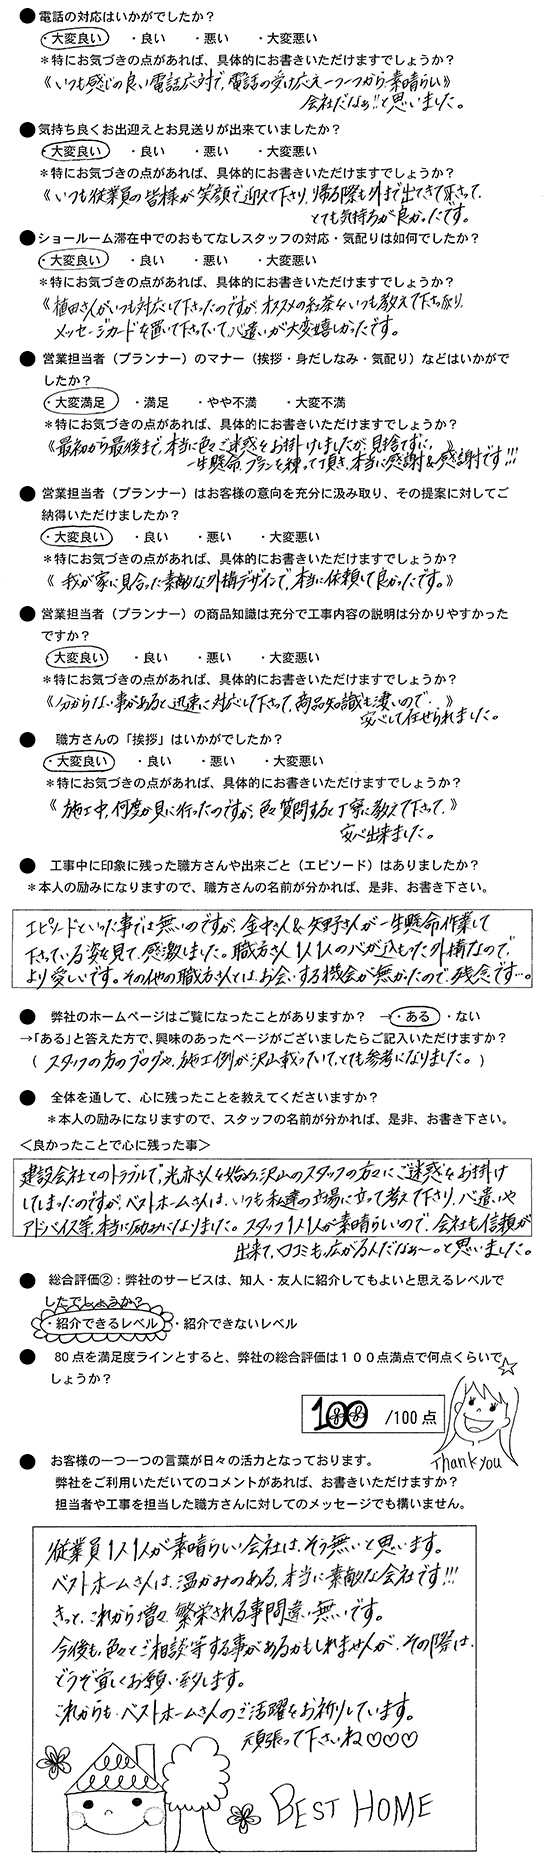 ●電話の対応はいかがでしたか？
・大変良い ・良い ・悪い ・大変悪い
＊特にお気づきの点があれば、具体的にお書きいただけますでしょうか？
《いつも感じの良い電話応対で、電話の受け応え一つ一つから、素晴らしい》
会社だなぁ!!と思いました。
●気持ち良くお出迎えとお見送りが出来ていましたか？
・大変良い ・良い ・悪い ・大変悪い
＊特にお気づきの点があれば、具体的にお書きいただけますでしょうか？
《いつも従業員の皆様が笑顔で迎えて下さり、帰る際も外まで出てきて下さって、
とても気持ちが良かったです。
●ショールーム滞在中でのおもてなしスタッフの対応・気配りは如何でしたか？
・大変良い ・良い ・悪い ・大変悪い
＊特にお気づきの点があれば、具体的にお書きいただけますでしょうか？
《植田さんがいつも対応して下さったのですが、オススメの紅茶をいつも教えて下さったり、
メッセージカードを置いて下さっていて、心遣いが大変嬉しかったです。
●営業担当者（プランナー）のマナー（挨拶・身だしなみ・気配り）などはいかがで
したか？
・大変満足 ・満足 ・やや不満 ・大変不満
＊特にお気づきの点があれば、具体的にお書きいただけますでしょうか？
《最初から最後まで、本当に色々ご迷惑をお掛けしましたが、見捨てずに、》
一生懸命プランを練って頂き、本当に感謝&感謝です!!!
●営業担当者（プランナー）はお客様の意向を充分に汲み取り、その提案に対してご
納得いただけましたか？
・大変良い ・良い ・悪い ・大変悪い
＊特にお気づきの点があれば、具体的にお書きいただけますでしょうか？
《 我が家に見合った素敵な外構デザインで、本当に依頼して良かったです。》
●営業担当者（プランナー）の商品知識は充分で工事内容の説明は分かりやすかった
ですか？
・大変良い ・良い ・悪い ・大変悪い
＊特にお気づきの点があれば、具体的にお書きいただけますでしょうか？
《分からない事があると、迅速に対応して下さって、商品知識も凄いので、》
安心して任せられました。
● 職方さんの「挨拶」はいかがでしたか？
・大変良い ・良い ・悪い ・大変悪い
＊特にお気づきの点があれば、具体的にお書きいただけますでしょうか？
《 施工中、何度か見に行ったのですが、色々質問すると丁寧に教えて下さって、》
安心出来ました。
● 工事中に印象に残った職方さんや出来ごと（エピソード）はありましたか？
＊本人の励みになりますので、職方さんの名前が分かれば、是非、お書き下さい。
エピソードといった事では無いのですが、金中さん&矢野さんが一生懸命作業して
下さっている姿を見て、感激しました。職方さん1人1人の心が込もった外構なので、
より愛しいです。その他の職方さんとは、お会いする機会が無かったので、残念です…。
● 弊社のホームページはご覧になったことがありますか？ →・ある ・ない
→「ある」と答えた方で、興味のあったページがございましたらご記入いただけますか？
（ スタッフの方のブログや、施工例が沢山載っていて、とても参考になりました。）
● 全体を通して、心に残ったことを教えてくださいますか？
＊本人の励みになりますので、スタッフの名前が分かれば、是非、お書き下さい。
＜良かったことで心に残った事＞
建設会社とのトラブルで、光亦さんを始め、沢山のスタッフの方々にご迷惑をお掛け
してしまったのですが、ベストホームさんは、いつも私達の立場に立って考えて下さり、心遣いや
アドバイス等、本当に励みになりました。スタッフ1人1人が素晴らしいので、会社も信頼が
出来て、口コミも広がるんだなぁ〜。と思いました。
● 総合評価②：弊社のサービスは、知人・友人に紹介してもよいと思えるレベルで
したでしょうか？
・紹介できるレベル ・紹介できないレベル
● 80点を満足度ラインとすると、弊社の総合評価は１００点満点で何点くらいで
しょうか？
100 /100点
Thank you
● お客様の一つ一つの言葉が日々の活力となっております。
弊社をご利用いただいてのコメントがあれば、お書きいただけますか？
担当者や工事を担当した職方さんに対してのメッセージでも構いません。
従業員1人1人が素晴らしい会社は、そう無いと思います。
ベストホームさんは、温かみのある、本当に素敵な会社です!!!
きっと、これから増々、繁栄される事間違い無いです。
今後も、色々とご相談等する事があるかもしれませんが、その際は、
どうぞ宜しくお願い致します。
これからも、ベストホームさんのご活躍をお祈りしています。
頑張って下さいね♡♡♡
BEST HOME